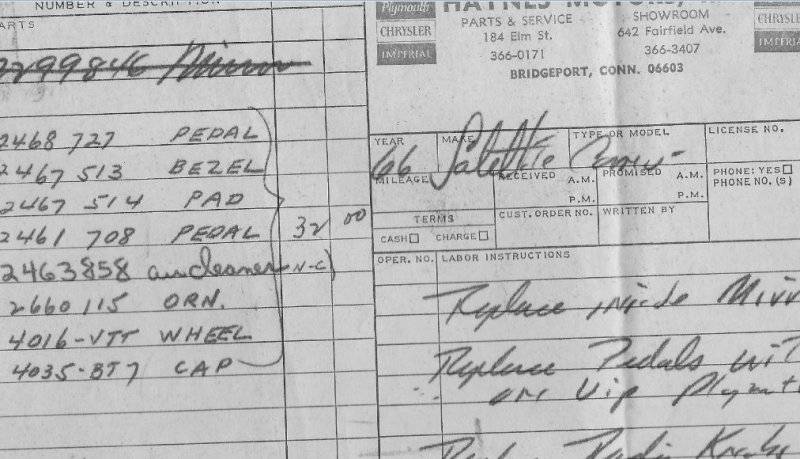 NUMBER & DESCRIPTION
PARTS
2299846 Mirror
2468 727 PEDAL
2467 513 BEZEL
2467 514 PAD
2461 708 PEDAL 32 00
2463858 air cleaner N-C
2660115 ORN.
4016-VTT WHEEL
4035-BT7 CAP
Plymouth
CHRYSLER
IMPERIAL
HAYNES MOTORS,
PARTS & SERVICE
184 Elm St.
366-0171
SHOWROOM
642 Fairfield Ave.
366-3407
BRIDGEPORT, CONN. 06603
CHRYSLER
IMPERIAL
YEAR MAKE TYPE OR MODEL LICENSE NO.
66 Satellite
MILEAGE RECEIVED A.M. P.M. PROMISED A.M. P.M. PHONE: YES☐
PHONE NO.(S)
TERMS CUST. ORDER NO. WRITTEN BY
CASH☐ CHARGE☐
OPER. NO. LABOR INSTRUCTIONS
Replace inside Mirr
Replace Pedals wit
on Vip Plymo
Radio Knobs